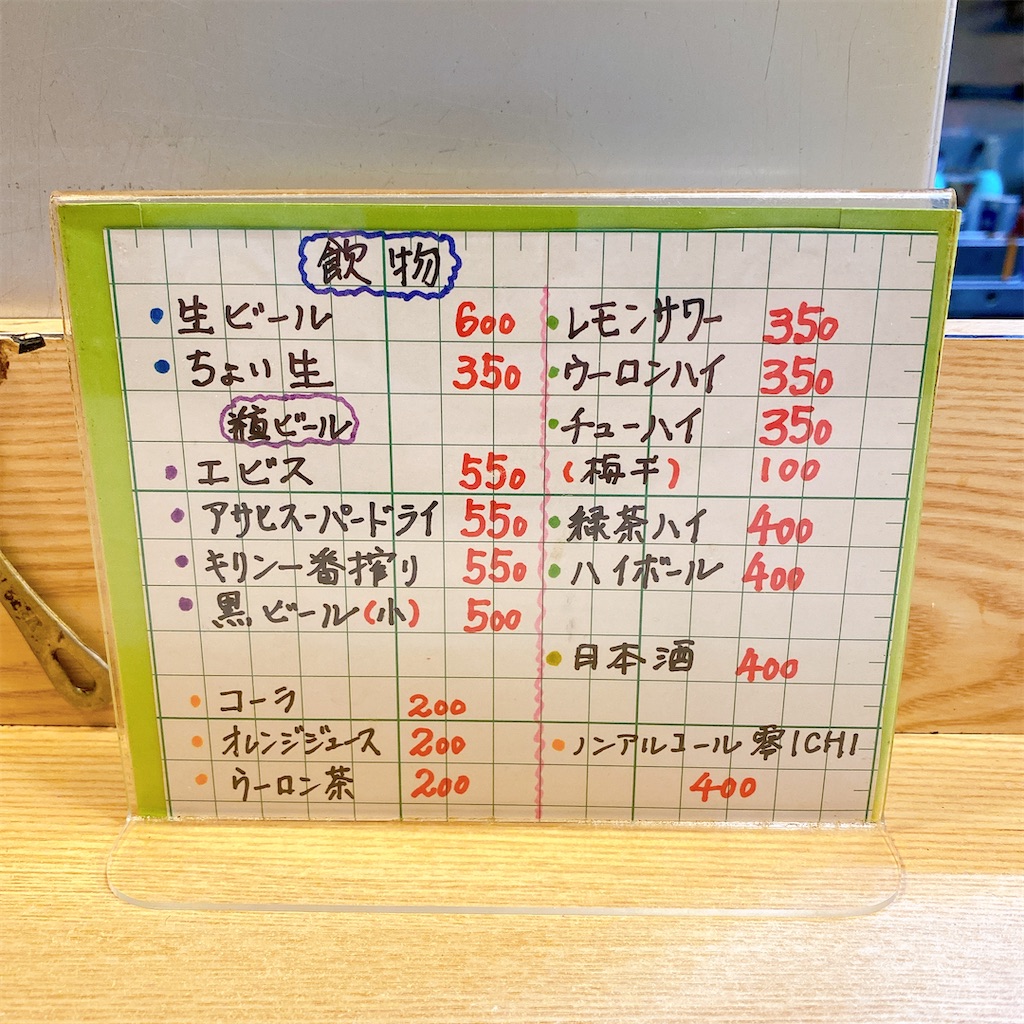 飲物
生ビール 600
ちょい生 350
ビール
エビス 550
アサヒスーパードライ 550
キリン一番搾り 550
黒ビール(小) 500
コーラ 200
オレンジジュース 200
ウーロン茶 200
レモンサワー 350
ウーロンハイ 350
チューハイ 350
(梅干) 100
緑茶ハイ 400
ハイボール 400
日本酒 400
ノンアルコール 零ICHI
400